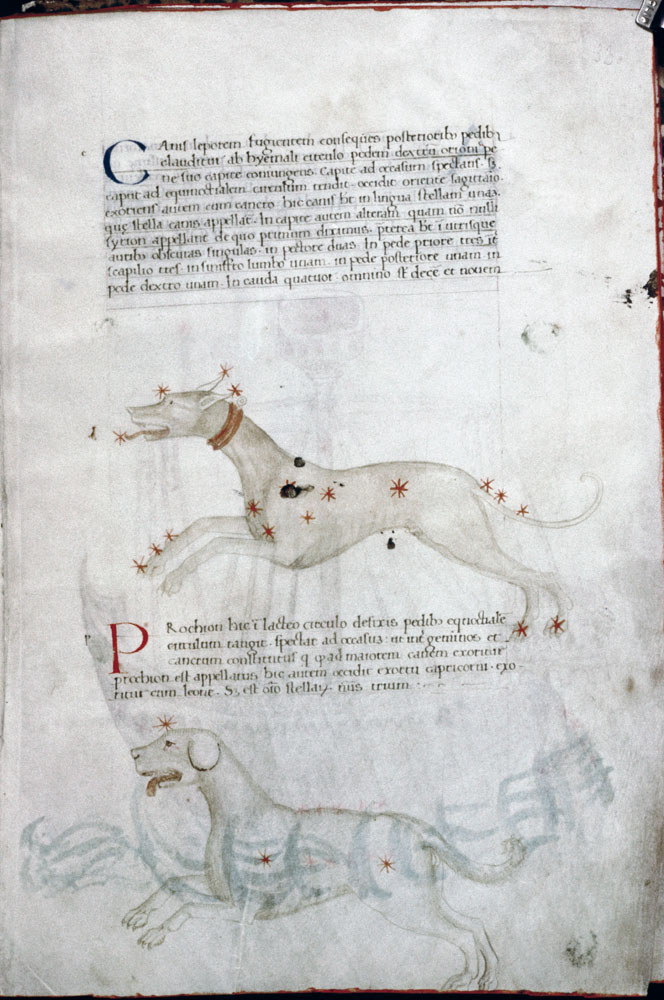 CAnis leporem fugientem consequēs posteriorib⁹ pedib⁹
clauditur ab hyemali circulo pedem dextrū orioni pe
ne suo capite coniungens. capite ad occasum spectans. sʒ
caput ad equinoctialem circulum tendit. occidit oriente sagittaio.
exoriens autem cum cancro. hic canis hꝫ in lingua stellam unā.
que stella canis appellat. In capite autem alteram. quam nōnulli
syrion appellant de quo primum diximus. preterea hꝫ ī utrisque
auribꝰ obscuras singulas. in pectore duas. In pede priore tres. ī
scapilio tres. in sinistro lumbo unam. in pede posteriore unam. in
pede dextro unam. In cauda quatuor. omnino sī decē et nouem
PRochion hic ī lacteo circulo defixis pedibꝰ eqnoctialē
circulum tangit. spectat ad occasus. ut int̄ geminos et
cancrum constitutus q qꝺ ad maiorem canem exoritur
prochion est appellatus. hic autem occidit exortu capricorni. exo-
ritur cum leone. Sʒ est oīo stellaꝝ. trium